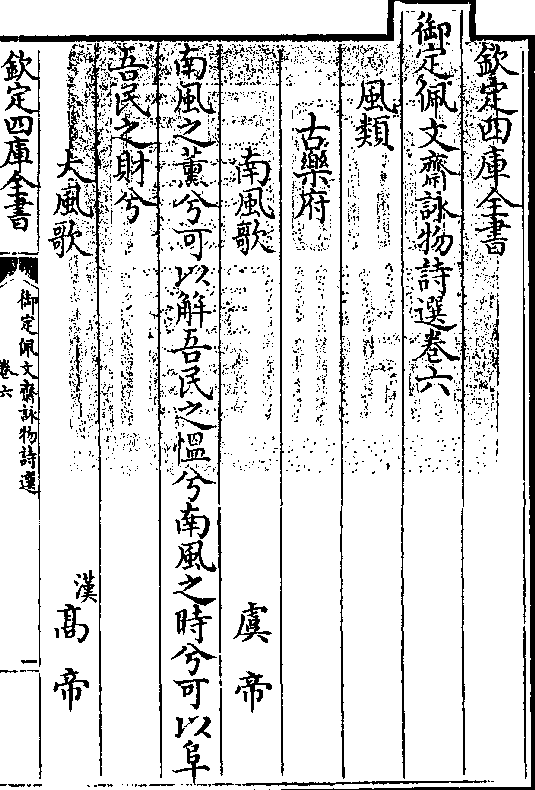 欽定四庫全書
御定佩文齋詠物詩選卷六
風類
古樂府
南風歌　虞帝
南風之薰兮可以解吾民之愠兮南風之時兮可以阜
吾民之財兮
大風歌　漢高帝
欽定四庫全書
御定佩文齋詠物詩選
卷六
一